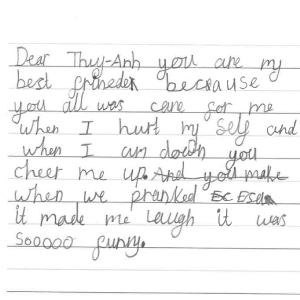 Dear Thuy-Anh you are my
best frineder becrause
you all was care for me
when I hurt my self and
when I am down you
cheer me up. And you make
when we pranked
it made me laugh it was
sooooo funny.